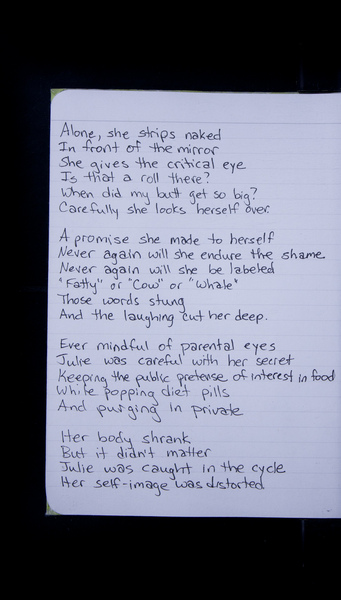 Alone, she strips naked
In front of the mirror
She gives the critical eye
Is that a roll there?
When did my butt get so big?
Carefully she looks herself over.
A promise she made to herself
Never again will she endure the shame.
Never again will she be labeled
"Fatty" or "Cow" or "Whale"
Those words stung
And the laughing cut her deep.
Ever mindful of parental eyes
Julie was careful with her secret
Keeping the public pretense of interest in food
While popping diet pills
And purging in private
Her body shrank
But it didn't matter
Julie was caught in the cycle
Her self-image was distorted